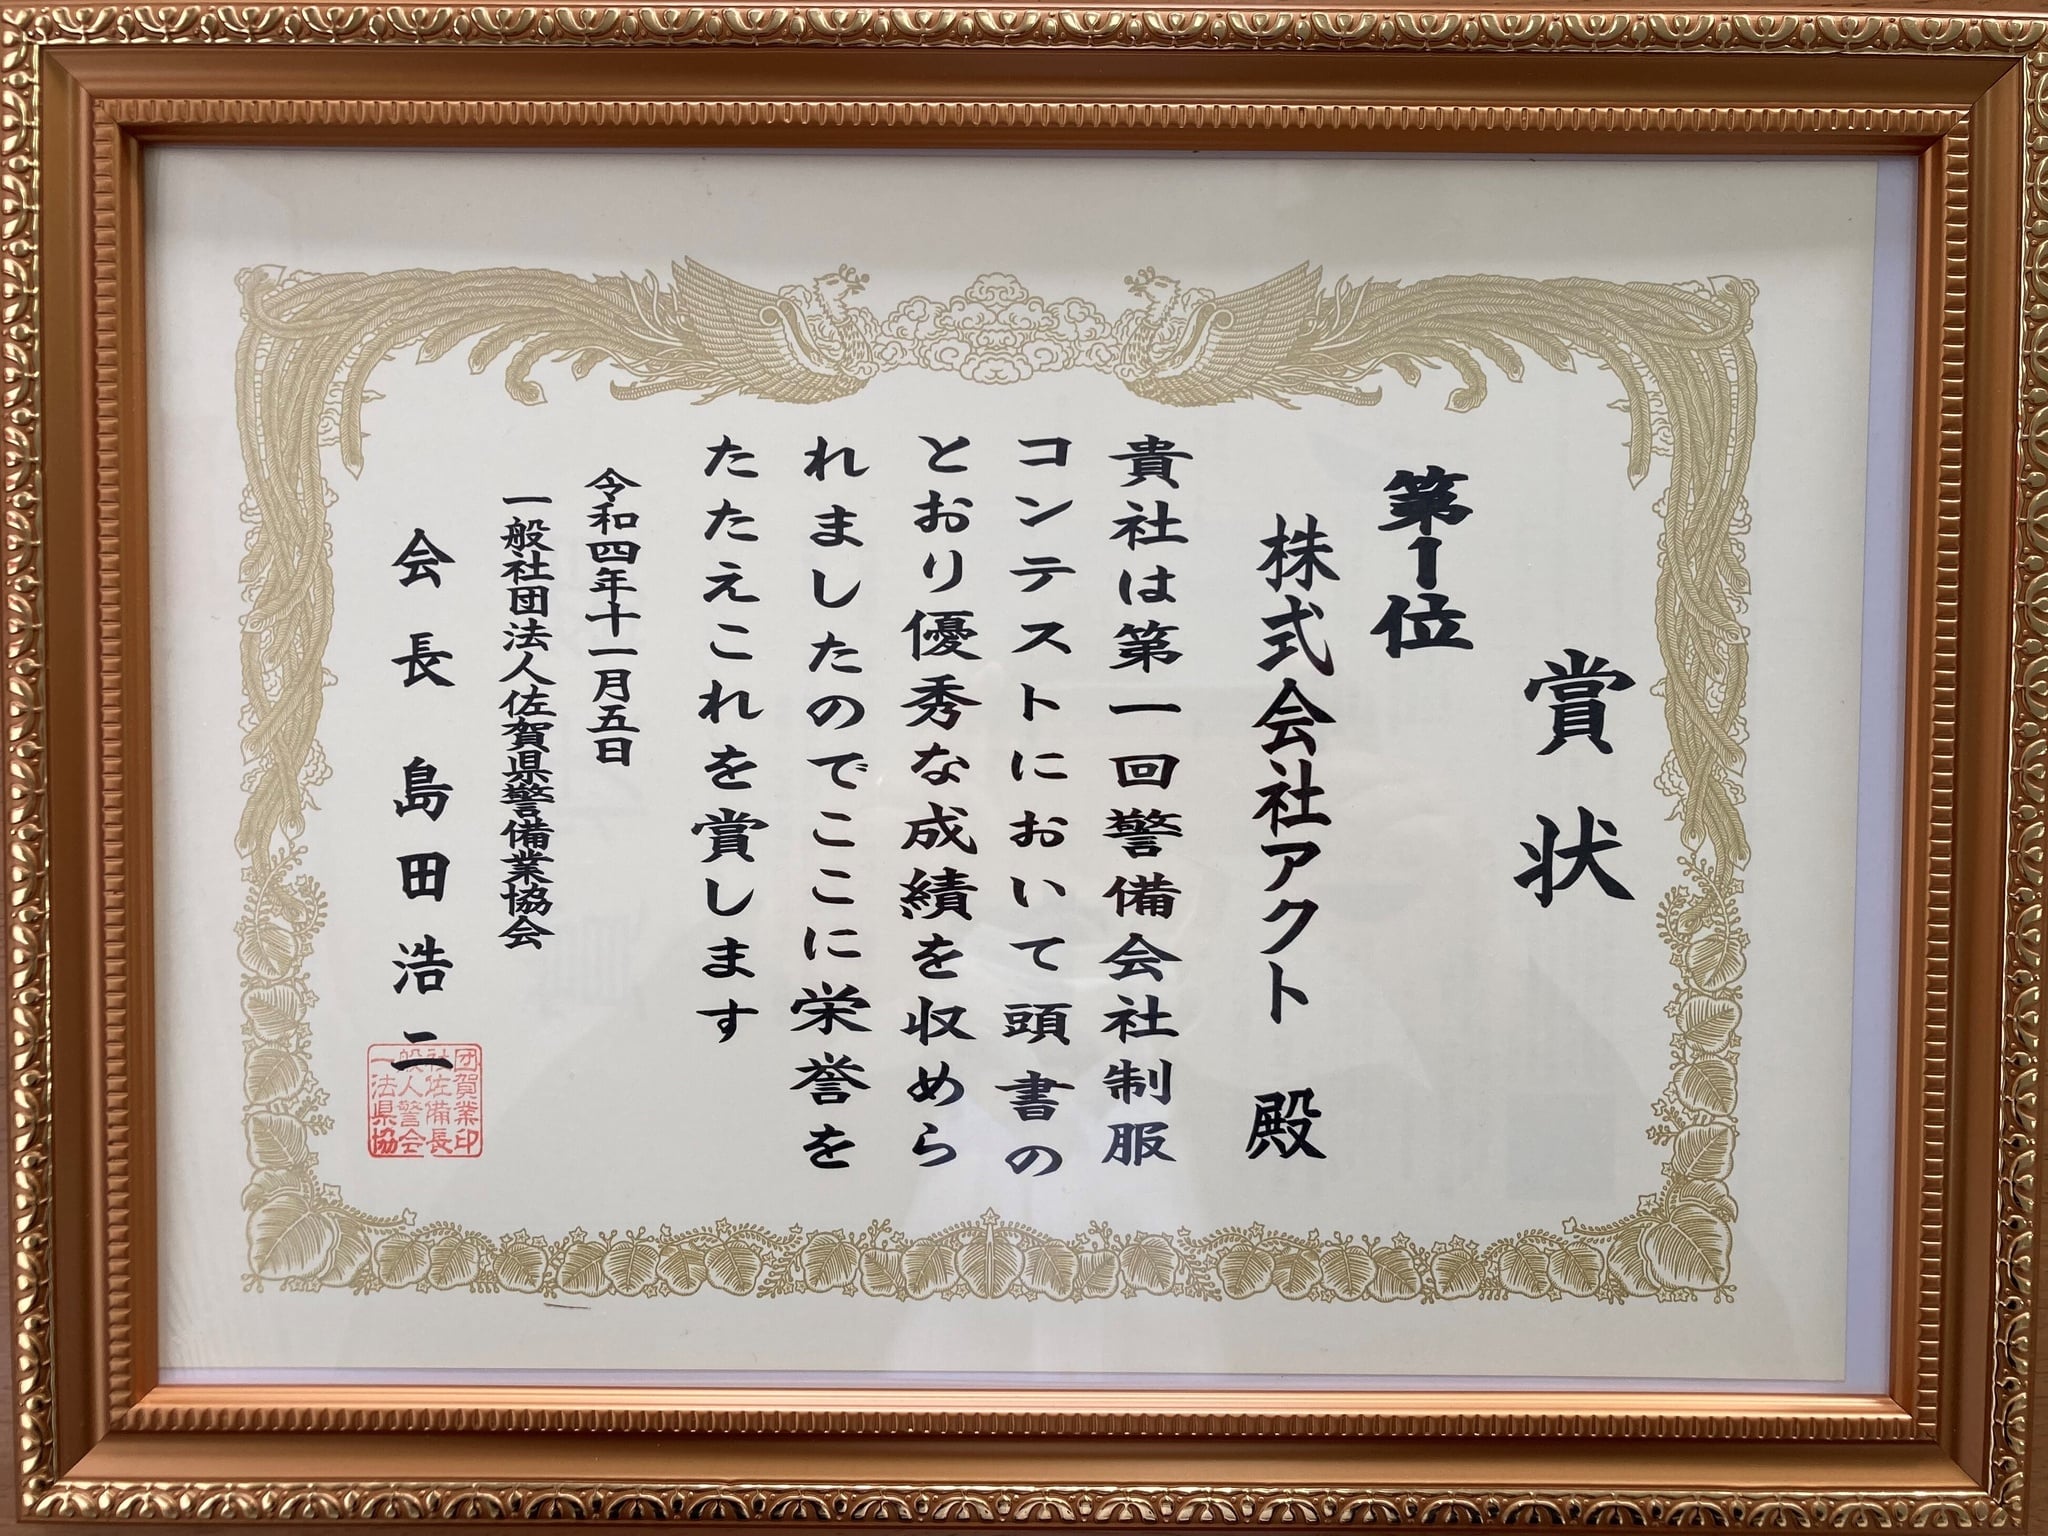 賞状
第1位
株式会社アクト 殿
貴社は第一回警備会社制服
コンテストにおいて頭書の
とおり優秀な成績を収めら
れましたのでここに栄誉を
たたえこれを賞します
令和四年十一月五日
一般社団法人佐賀県警備業協会
会長 島田浩二
団賀業印
社佐備長
般人警会
一法県協